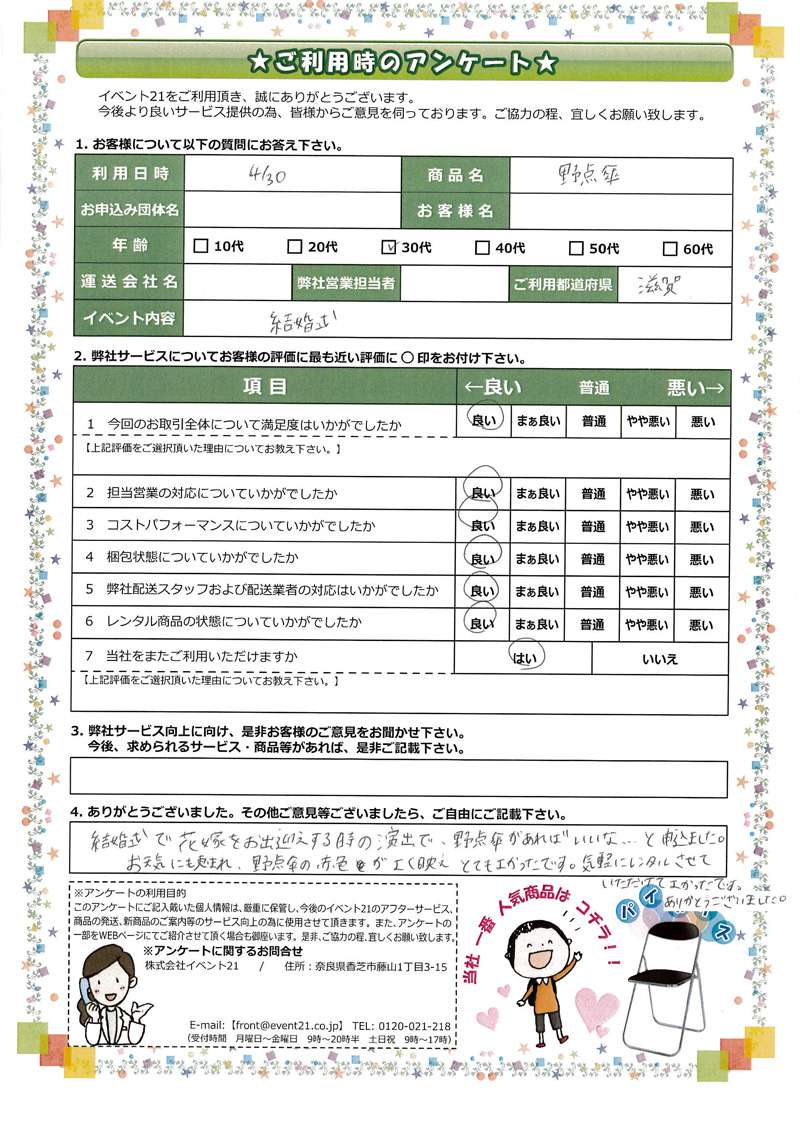 ★ご利用時のアンケート★
イベント21をご利用頂き、誠にありがとうございます。
今後より良いサービス提供の為、皆様からご意見を伺っております。ご協力の程、宜しくお願い致します。
1. お客様について以下の質問にお答え下さい。
利用日時 4/30 商品名 野点傘
お申込み団体名 お客様名
年齢 □ 10代 □ 20代 ☑ 30代 □ 40代 □ 50代 □ 60代
運送会社名 弊社営業担当者 ご利用都道府県 滋賀
イベント内容 結婚式
2. 弊社サービスについてお客様の評価に最も近い評価に ○ 印をお付け下さい。
項目 ←良い 普通 悪い→
1 今回のお取引全体について満足度はいかがでしたか 良い まぁ良い 普通 やや悪い 悪い
【上記評価をご選択頂いた理由についてお教え下さい。】
2 担当営業の対応についていかがでしたか 良い まぁ良い 普通 やや悪い 悪い
3 コストパフォーマンスについていかがでしたか 良い まぁ良い 普通 やや悪い 悪い
4 梱包状態についていかがでしたか 良い まぁ良い 普通 やや悪い 悪い
5 弊社配送スタッフおよび配送業者の対応はいかがでしたか 良い まぁ良い 普通 やや悪い 悪い
6 レンタル商品の状態についていかがでしたか 良い まぁ良い 普通 やや悪い 悪い
7 当社をまたご利用いただけますか はい いいえ
【上記評価をご選択頂いた理由についてお教え下さい。】
3. 弊社サービス向上に向け、是非お客様のご意見をお聞かせ下さい。
今後、求められるサービス・商品等があれば、是非ご記載下さい。
4. ありがとうございました。その他ご意見等ございましたら、ご自由にご記載下さい。
結婚式で花嫁をお出迎えする時の演出で、野点傘があればいいな…と申込ました。
お天気にも恵まれ、野点傘の赤色がよく映えとてもよかったです。気軽にレンタルさせて
いただけてよかったです。
ありがとうございました。
※アンケートの利用目的
このアンケートにご記入戴いた個人情報は、厳重に保管し、今後のイベント21のアフターサービス、
商品の発送、新商品のご案内等のサービス向上の為に使用させて頂きます。また、アンケートの
一部をWEBページにてご紹介させて頂く場合も御座います。是非、ご協力の程、宜しくお願い致します。
※アンケートに関するお問合せ
株式会社イベント21 / 住所：奈良県香芝市藤山1丁目3-15
E-mail:【front@event21.co.jp】 TEL: 0120-021-218
(受付時間 月曜日～金曜日 9時～20時半 土日祝 9時～17時)
当社一番人気商品はコチラ！！
パイプイス